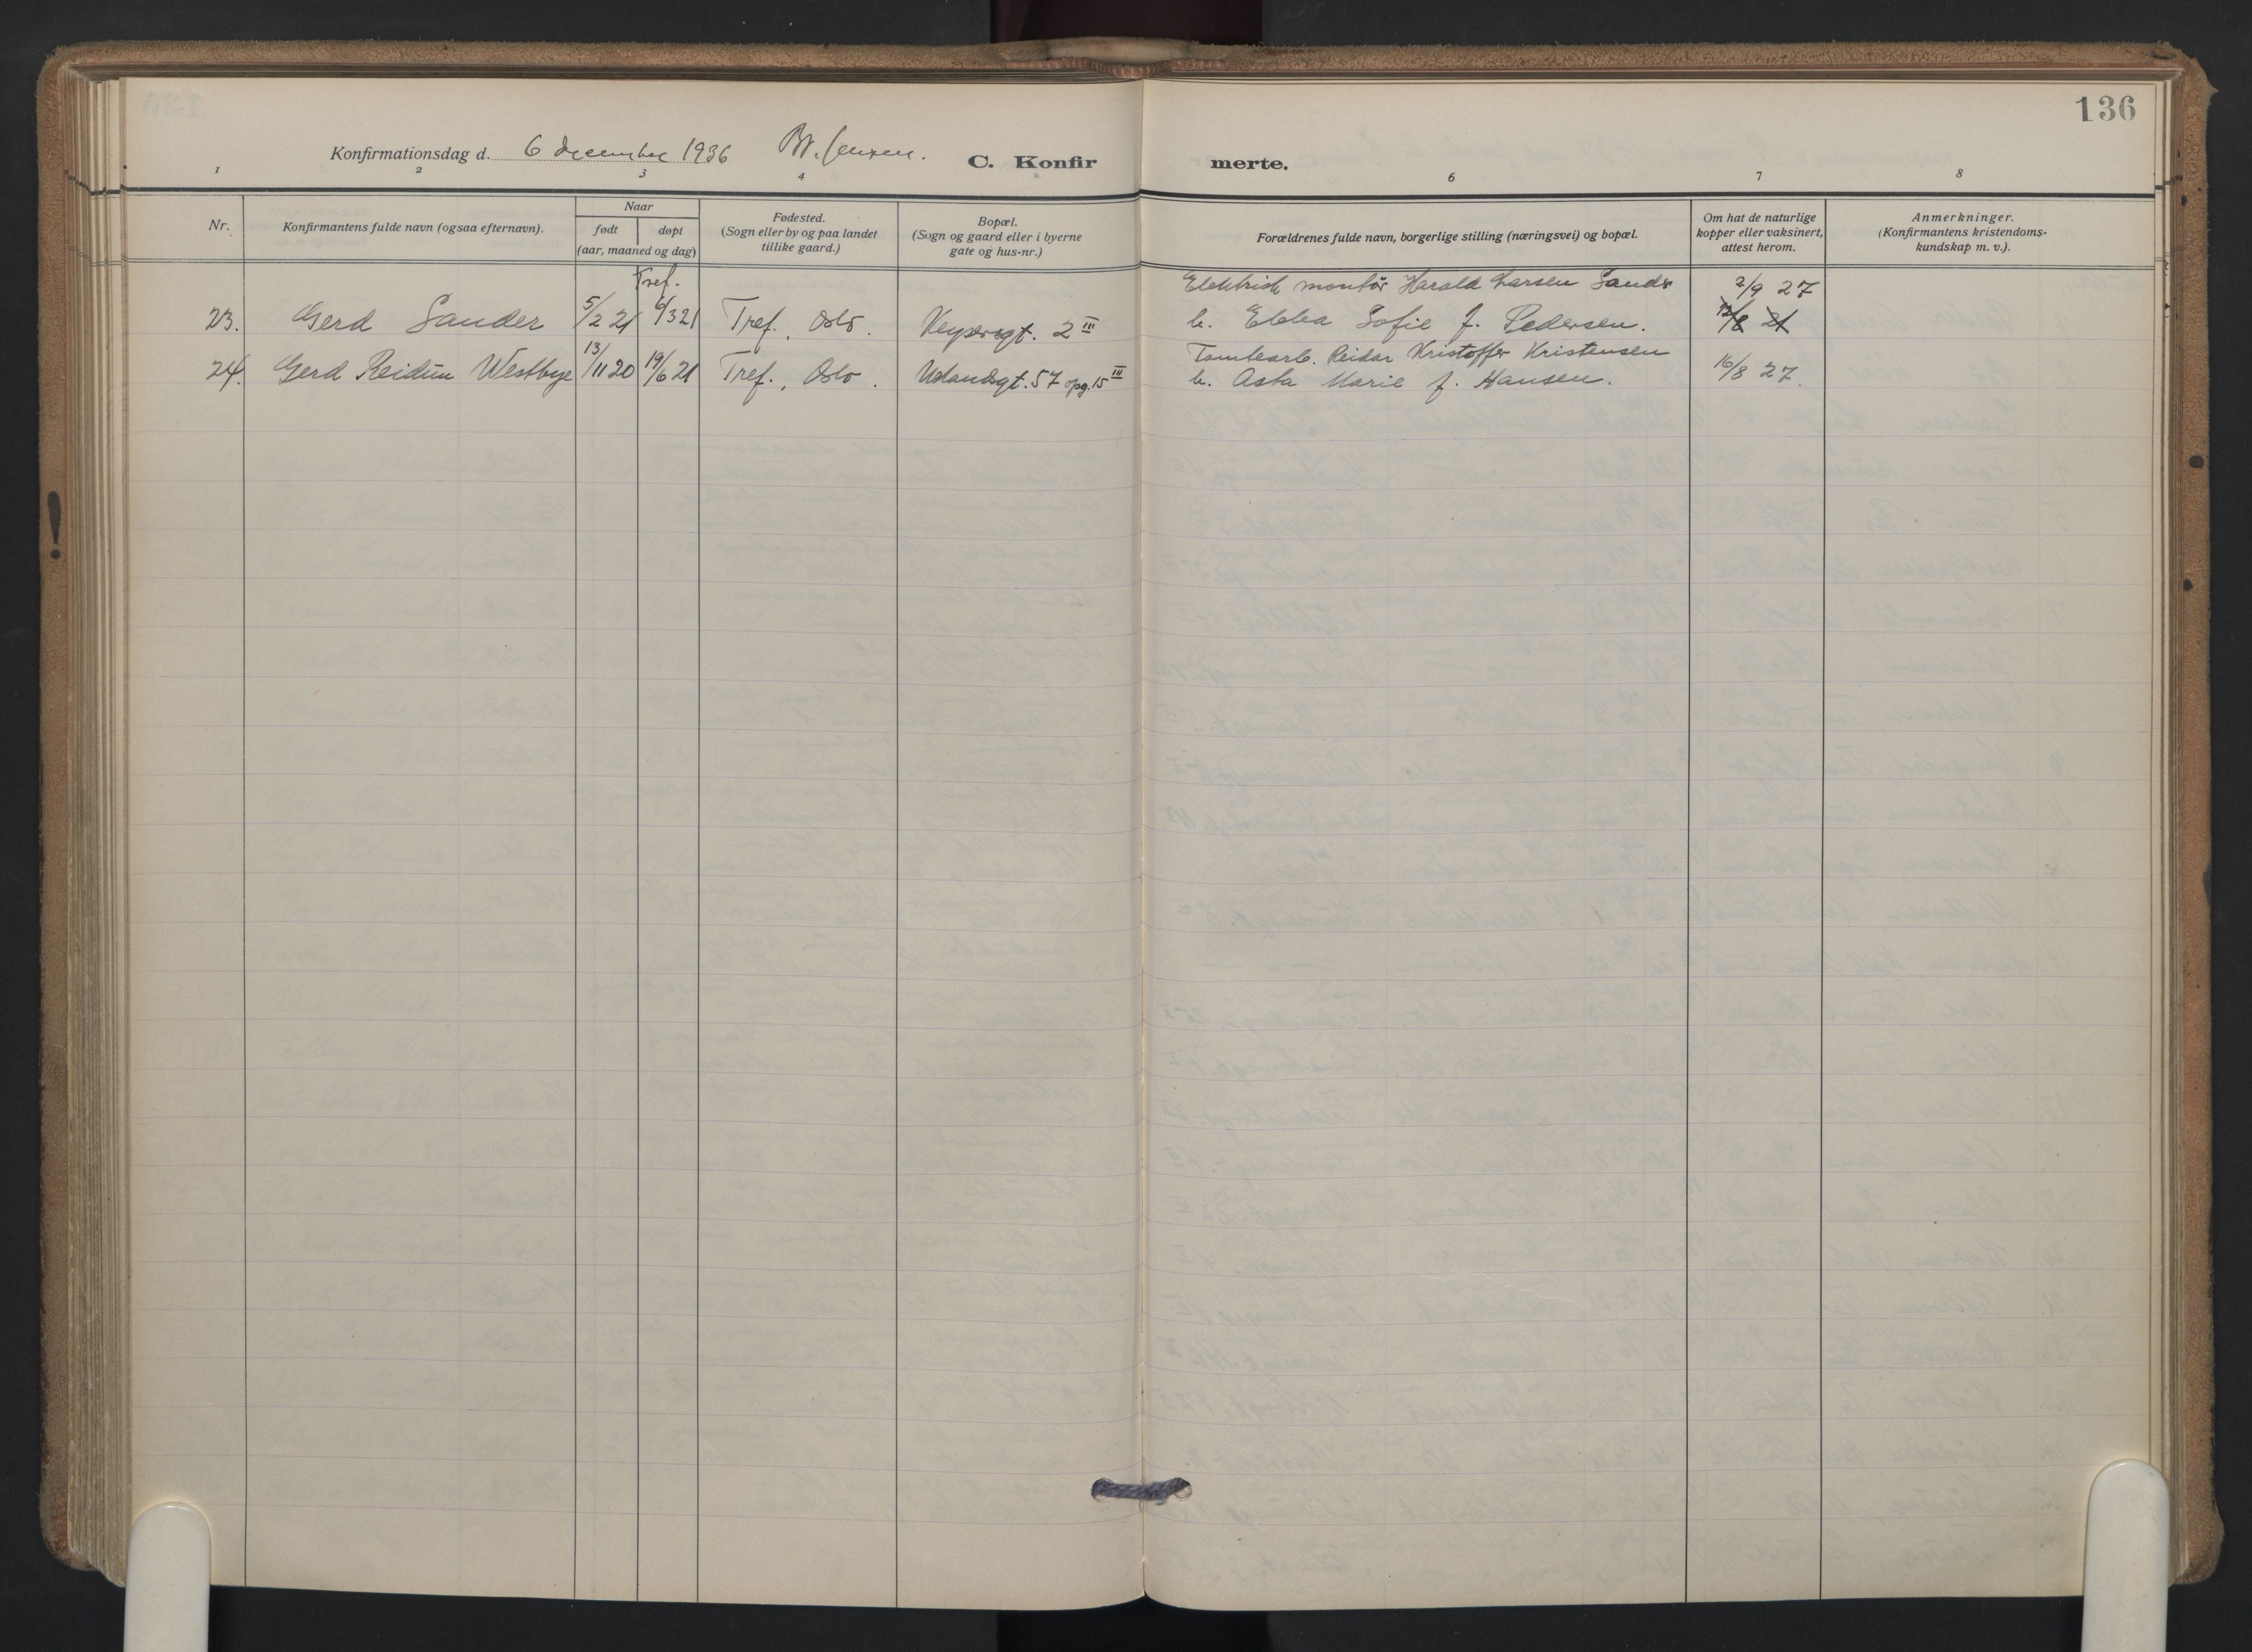 136
Konfirmationsdag d. 6 december 1936
C. Konfir merte.
1 2 3 4 6 7 8
Nr.
Konfirmantens fulde navn (ogsaa efternavn).
Naar
født døpt
(aar, maaned og dag)
Fødested.
(Sogn eller by og paa landet
tillike gaard.)
Bopæl.
(Sogn og gaard eller i byerne
gate og hus-nr.)
Forældrenes fulde navn, borgerlige stilling (næringsvei) og bopæl.
Om hat de naturlige
kopper eller vaksinert,
attest herom.
Anmerkninger.
(Konfirmantens kristendoms-
kundskap m. v.).
Tref.
Elektrisk montør Harald Larsen Sander 2/9 27
23. Gerd Sander 5/2 21 6/3 21 Tref., Oslo. Keysersgt. 2 III h. Ebba Sofie f. Pedersen. 12/8 21
Tomtearb. Reidar Kristoffer Kristensen
24. Gerd Reidun Westbye 13/11 20 19/6 21 Tref., Oslo. Uelandsgt. 57 opg. 15 III h. Asta Marie f. Hansen. 16/8 27.